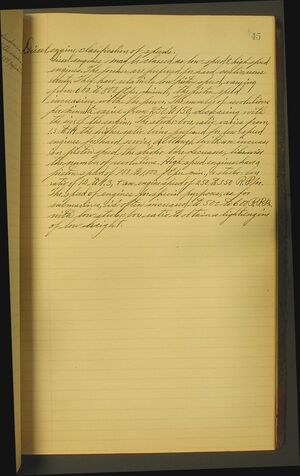 45
Diesel engine, classification of speeds.
Diesel engines may be classed as low speed & high speed
engines. The former are preferred for hard continuous
duty. They have relatively low piston speed, varying
from 600 to 800 ft. per minute, the piston speed
increasing with the power. The number of revolutions
per minute varies from to 150, decreasing with
the size of the engine. The stroke-bore ratio varies from
1.3 to the higher ratio being preferred for low speed
engines for hard service. Although with an increase
in piston speed the stroke-bore decreases, likewise
the number of revolutions. High speed engines have a
piston speed of to ft. per min., a stroke-bore
ratio of 1. to 1.3, & an engine speed of 250 to 550 R.P.M.
The speed of engines for special purposes, as for
submarines, is often increased to 500 to 600 R.P.M.
with low stroke-bore ratio to obtain a light engine
of low height.